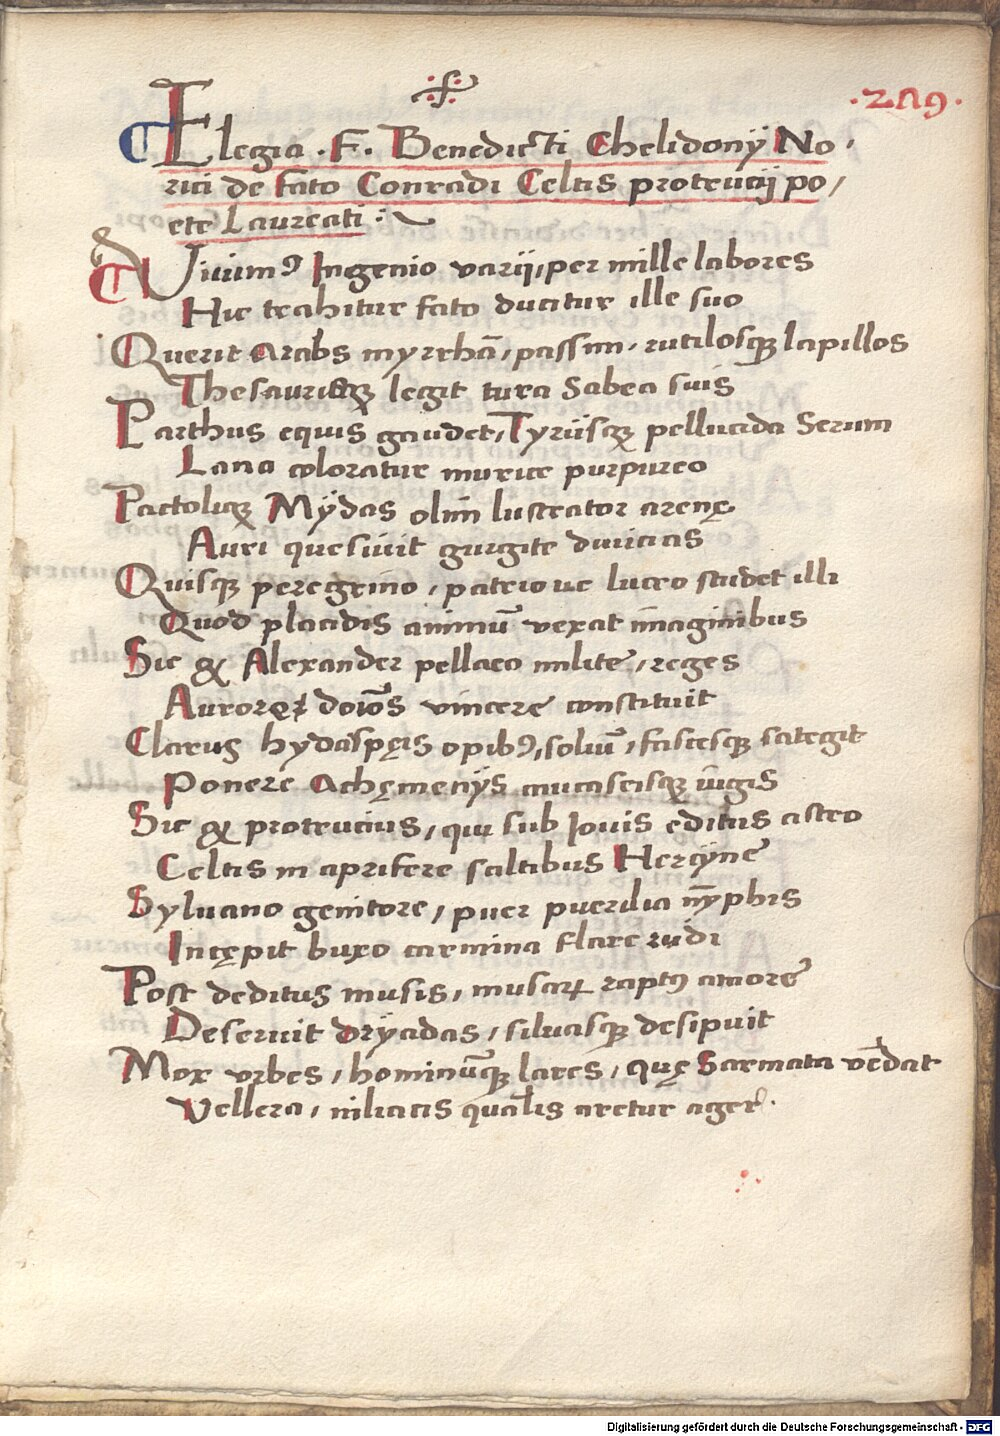 ·289·
Elegia · F · Benedicti Chelidonij No·
rici de fato Conradi Celtis protrucij po/
ete Laureati :~
Viuimꝰ Ingenio varij, per mille labores
Hic trahitur fato ducitur ille suo
Querit Arabs myrrhā, passim, rutilosqꝫ lapillos
Thesaurisqꝫ legit tura Sabea suis
Parthus equis gaudet, Tyriisqꝫ pellucida Serum
Lana coloratur murice purpureo
Pactoliqꝫ Mÿdas olim lustrator arenę
Auri quesiuit gurgite diuicias
Quisqꝫ peregrino, patrio ue lucro studet illi
Quod placidis animū vexat imaginibus
Sic & Alexander pellaeo milite, reges
Auroręqꝫ domos vincere constituit
Clarus hydaspęis opibꝰ, soliū, fascesqꝫ sategit
Ponere Achęmenijs caucaseisqꝫ iugis
Sic & protrucius, qui sub Iouis editus astro
Celtis in aprifere saltibus Hercÿne
Syluano genitore, puer puerilia nȳphis
Incępit buxo carmina flare rudi
Post deditus musis, musaꝝ raptꝰ amore
Deseruit drÿadas, siluasqꝫ desipuit
Mox vrbes, hominūqꝫ lares, quę Sarmata vēdat
Vellera, niliacis qualis aretur ager·
Digitalisierung gefördert durch die Deutsche Forschungsgemeinschaft - DFG